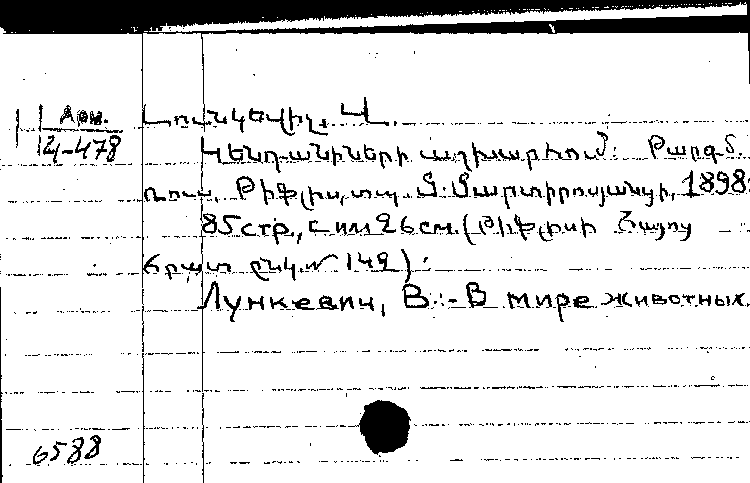 Арм.
Լունկեվիչ, Վ.
Ц-478
Կենդանիների աշխարհում: Թարգմ.
ռուս. Թիֆլիս, տպ. Մ. Մարտիրոսյանցի, 1898:
85 стр., с ил. 26 см. (Թիֆլիսի Հայոց
Հրատ. ընկ. № 149):
Лункевич, В.:- В мире животных.
6588